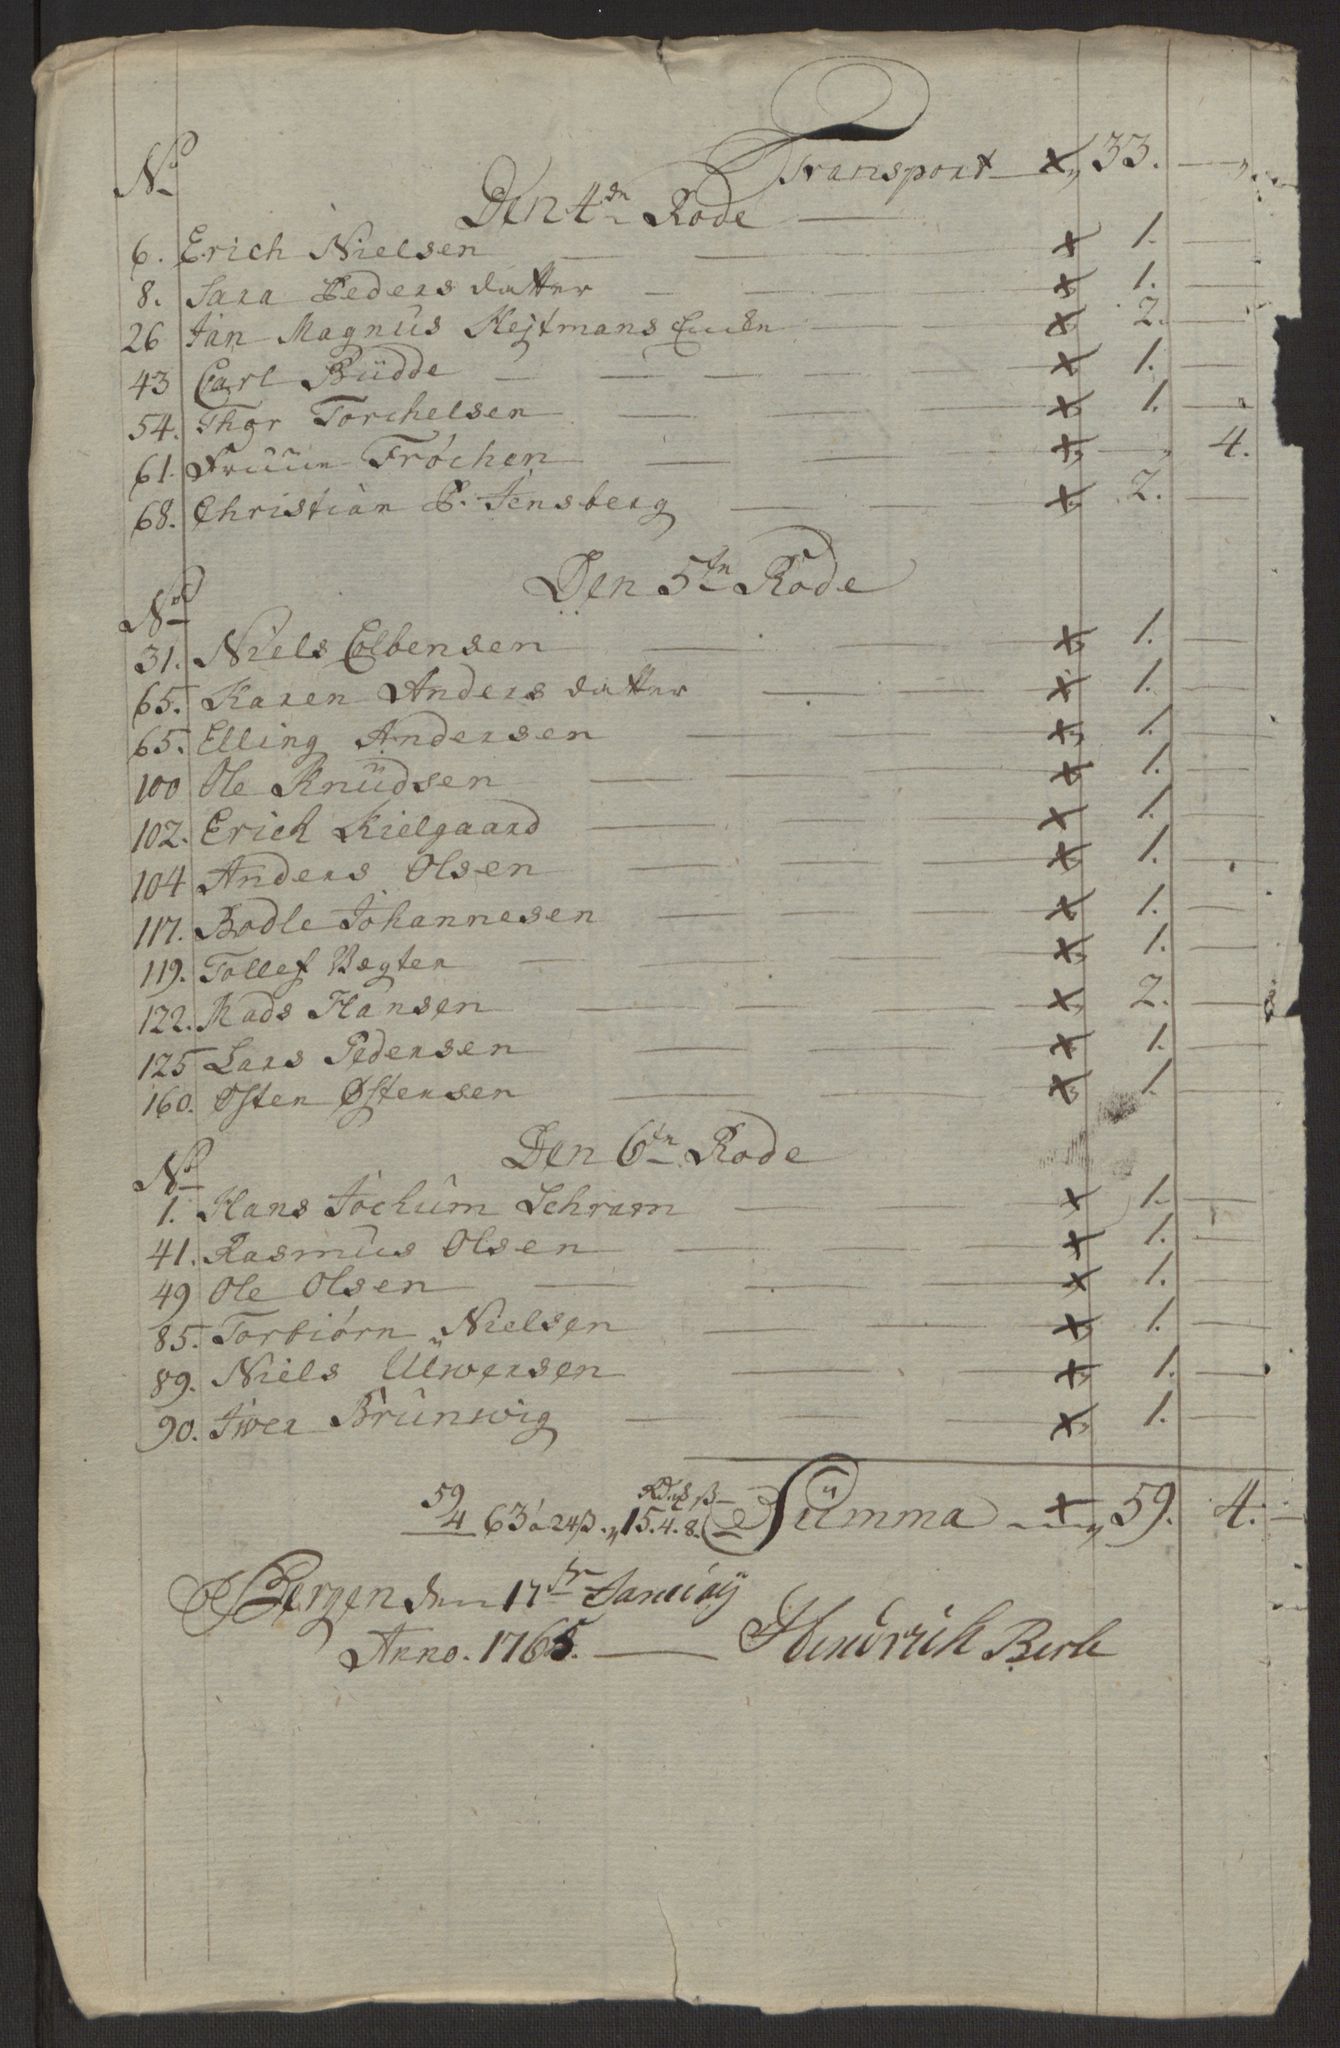 Transport x„ 33. — „
No
Den 4de Rode
6. Erich Nielsen — x 1. —
8. Sara Peders datter — x 1. —
26 Jan Magnus Hejtmans — x 2. —
43 Carl Büdde — x 1. —
54. Thor Torchelsen — x 1. —
61. Fröchen — x„ — „ 4.
68. Christian P. Jensberg — x„ 2. —
Den 5te Rode
No
31. Niels Colbensen — x„ 1. —
65. Karen Anders datter — x 1. —
65. Elling Andersen — x„ 1. —
100 Ole Knüdsen — x 1. —
102. Erich Kielgaard — x 1. —
104 Anders Olsen — x„ 1. —
117. Bodle Johannesen — x„ 1. —
119. Tollef Vægter — x„ 1. —
122. Mads Hansen — x„ 2. —
125 Lars Pedersen — x„ 1. —
160. Osten Østensen — x„ 1. —
Den 6te Rode
No
1. Hans Jochüm Schram — x 1. —
41. Rasmus Olsen — x 1. —
49 Ole Olsen — x 1. —
85. Torbiörn Nielsen — x„ 1. —
89. Niels Ülwersen — x„ 1. —
90. Iwer Brünwig — x„ 1. —
59
4 63 a 24ß „ 15. 4. 8. Sümma — x „ 59. 4. —
Bergen den 17de Janüarij
Anno. 1765. — Hendrich Berle